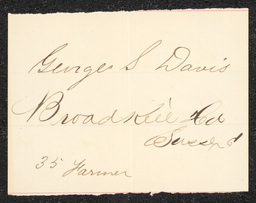 George S Davis
Broadkiln Hd
Sussex
35 Farmer